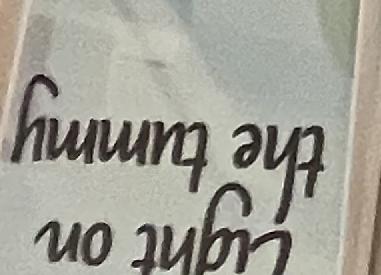 Light on
the tummy